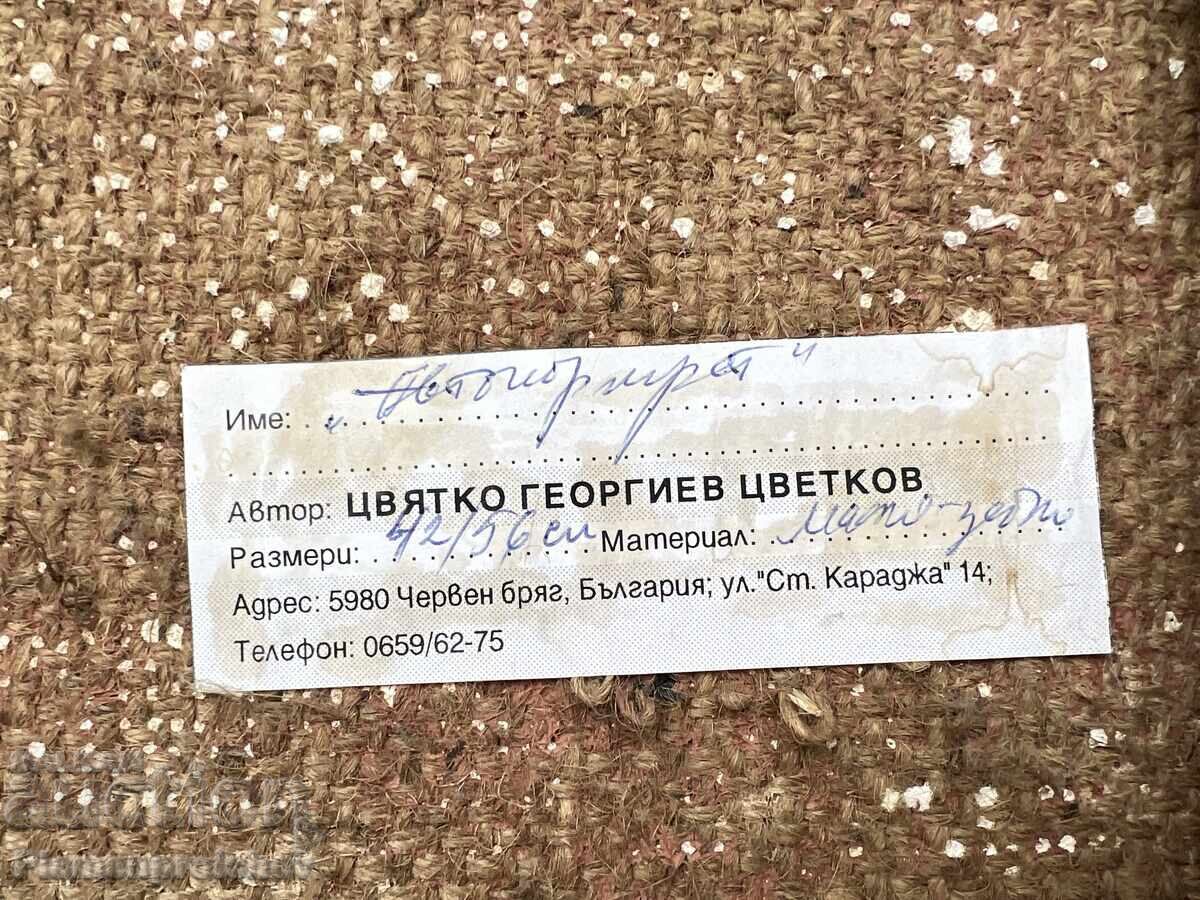 Име: "Автопортрет"
Автор: ЦВЯТКО ГЕОРГИЕВ ЦВЕТКОВ
Размери: 42/56 см Материал:
Адрес: 5980 Червен бряг, България; ул."Ст. Караджа" 14;
Телефон: 0659/62-75